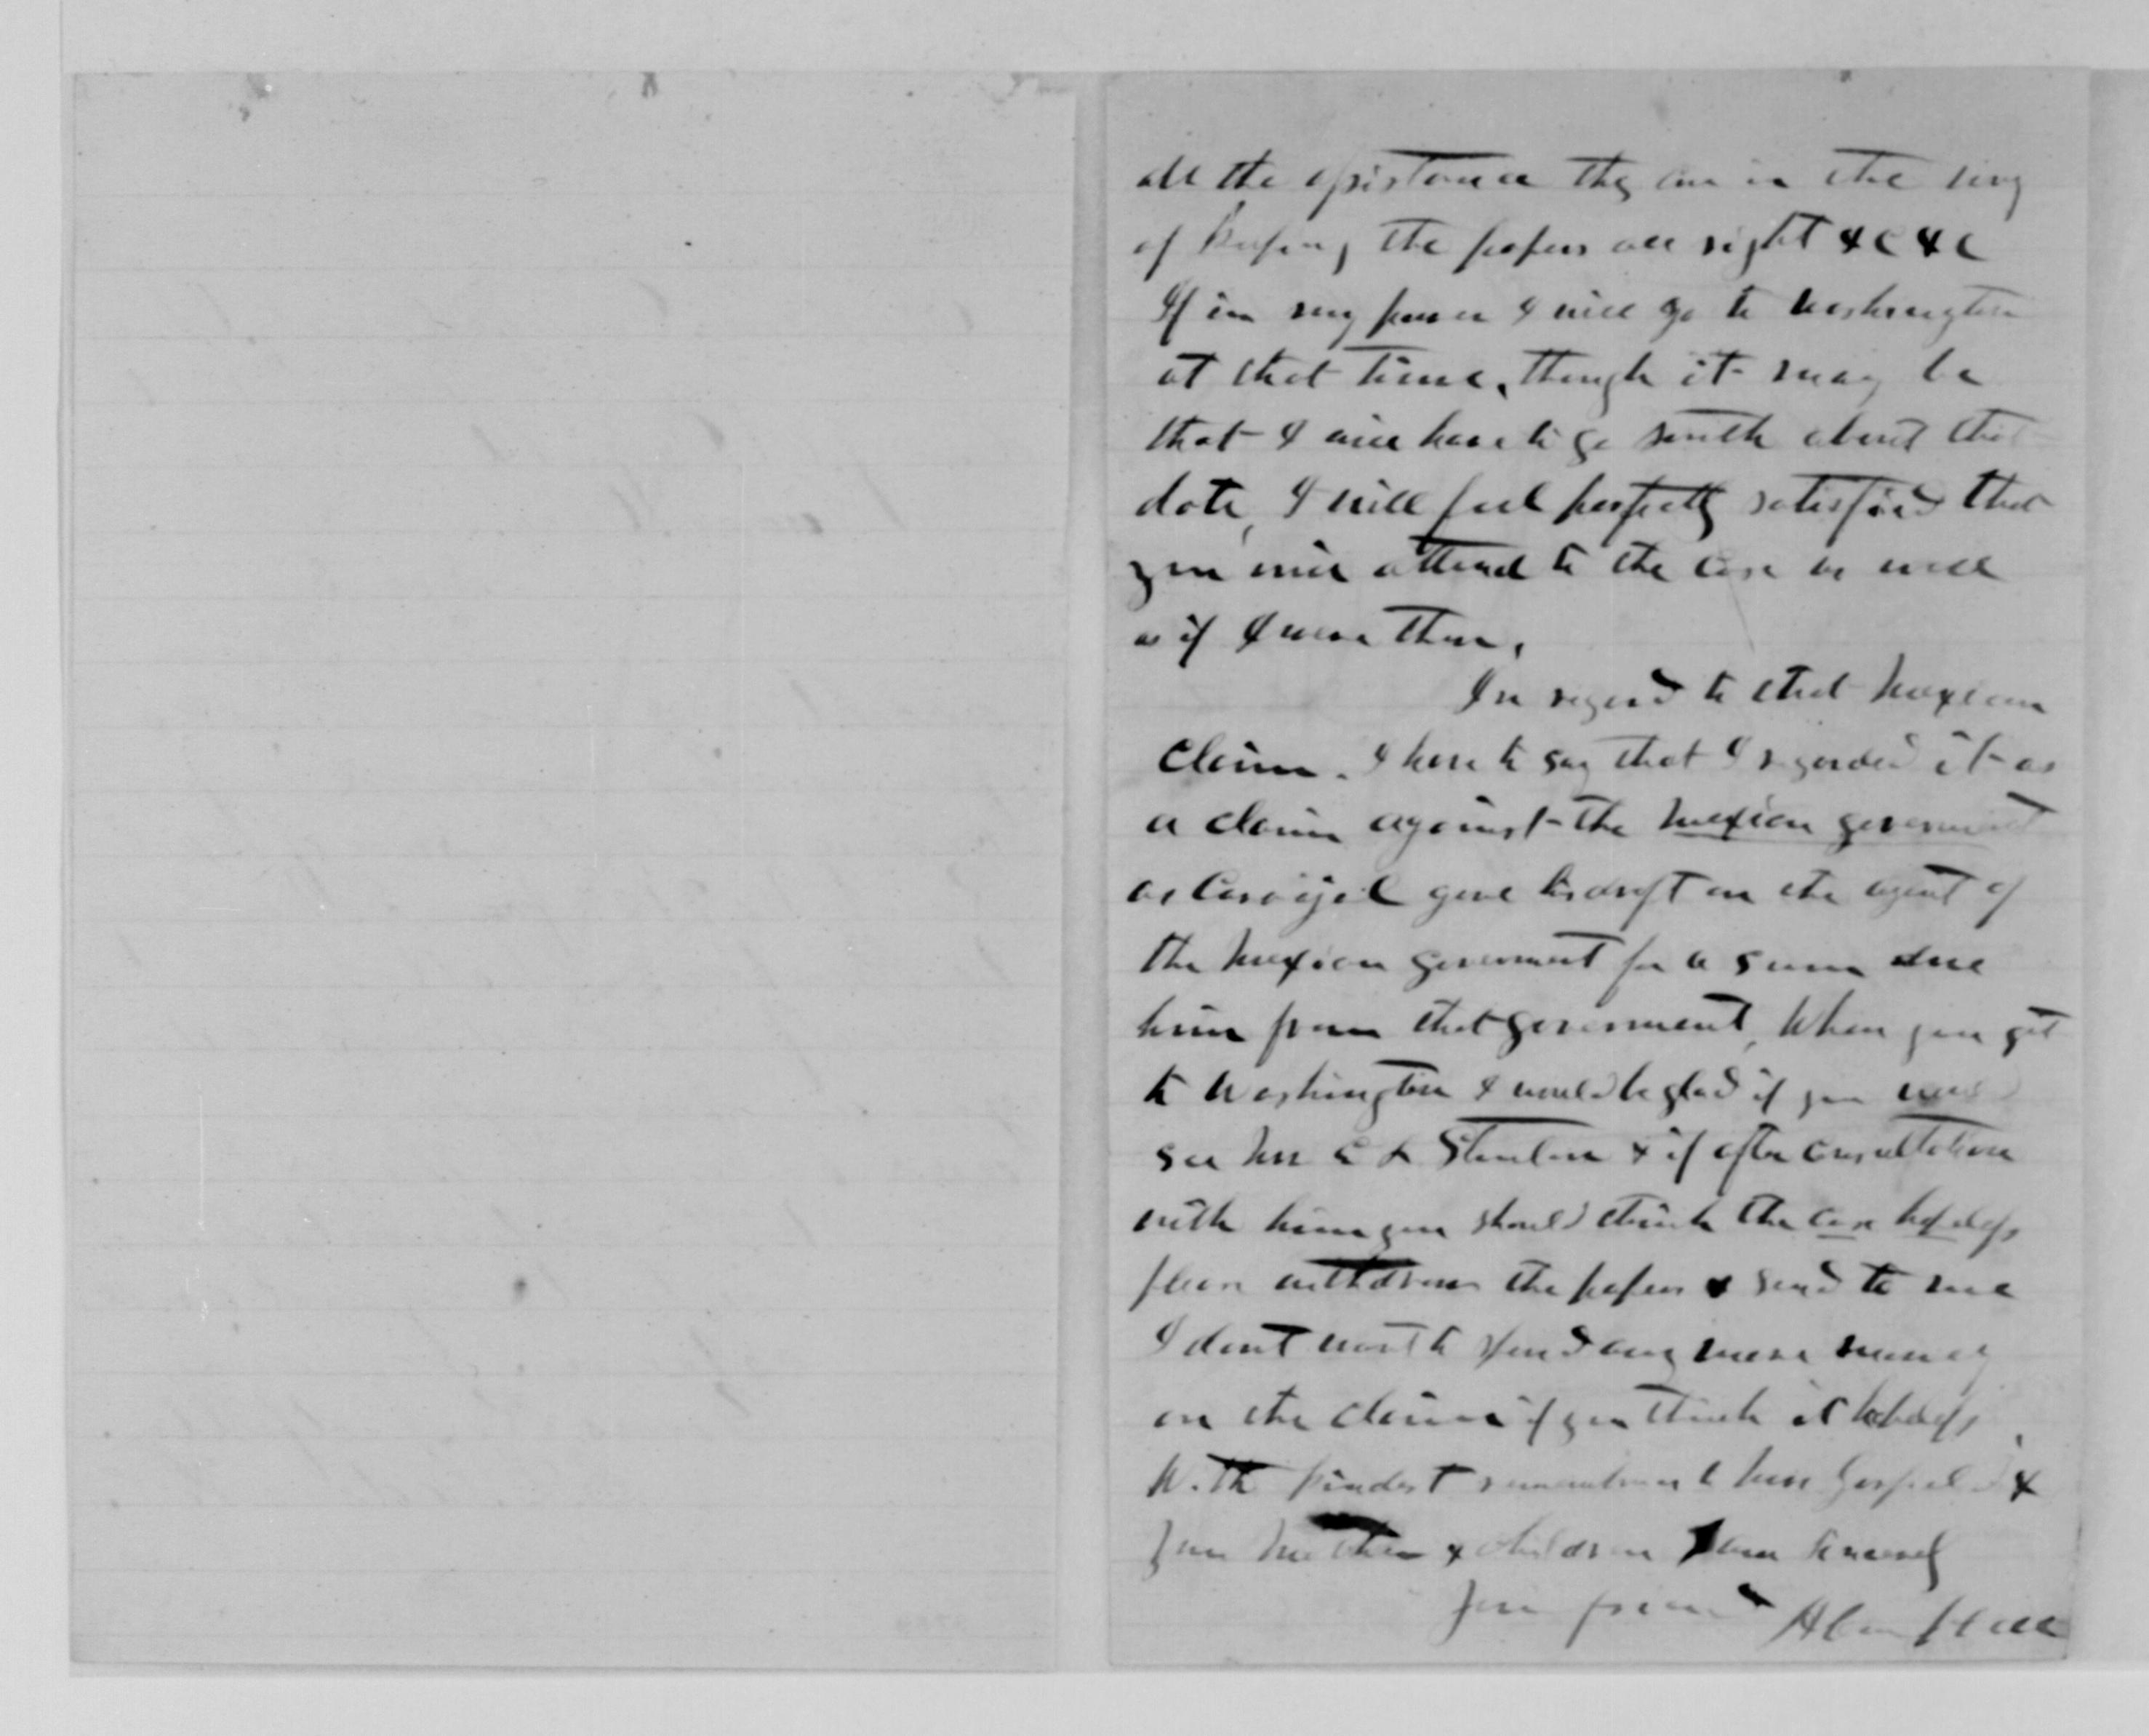 all the assistance they can in the way
of keeping the papers all right &c &c
If in my power I will go to Washington
at that time, though it may be
that I will have to go south about that
date, I will feel perfectly satisfied that
you will attend to the case as well
as if I were there,
In regard to that Mexican
Claim. I have to say that I regarded it as
a claim against the Mexican government
as Caravajal gave his draft on the agent of
the Mexican government for a sum due
him from that government, When you get
to Washington I would be glad if you would
see Mr Stanton & if after consultation
with him you should think the case hopeless
please withdraw the papers & send to me
I dont want to spend any more money
on the claim if you think it hopeless,
With kindest remembrance to &
your Mother & children I am sincerely
Your friend